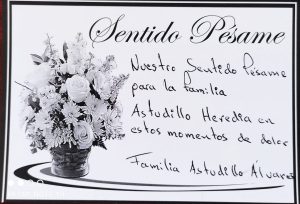 Sentido Pésame
Nuestro Sentido Pésame
para la familia
Astudillo Heredia en
estos momentos de dolor
Familia Astudillo Álvarez